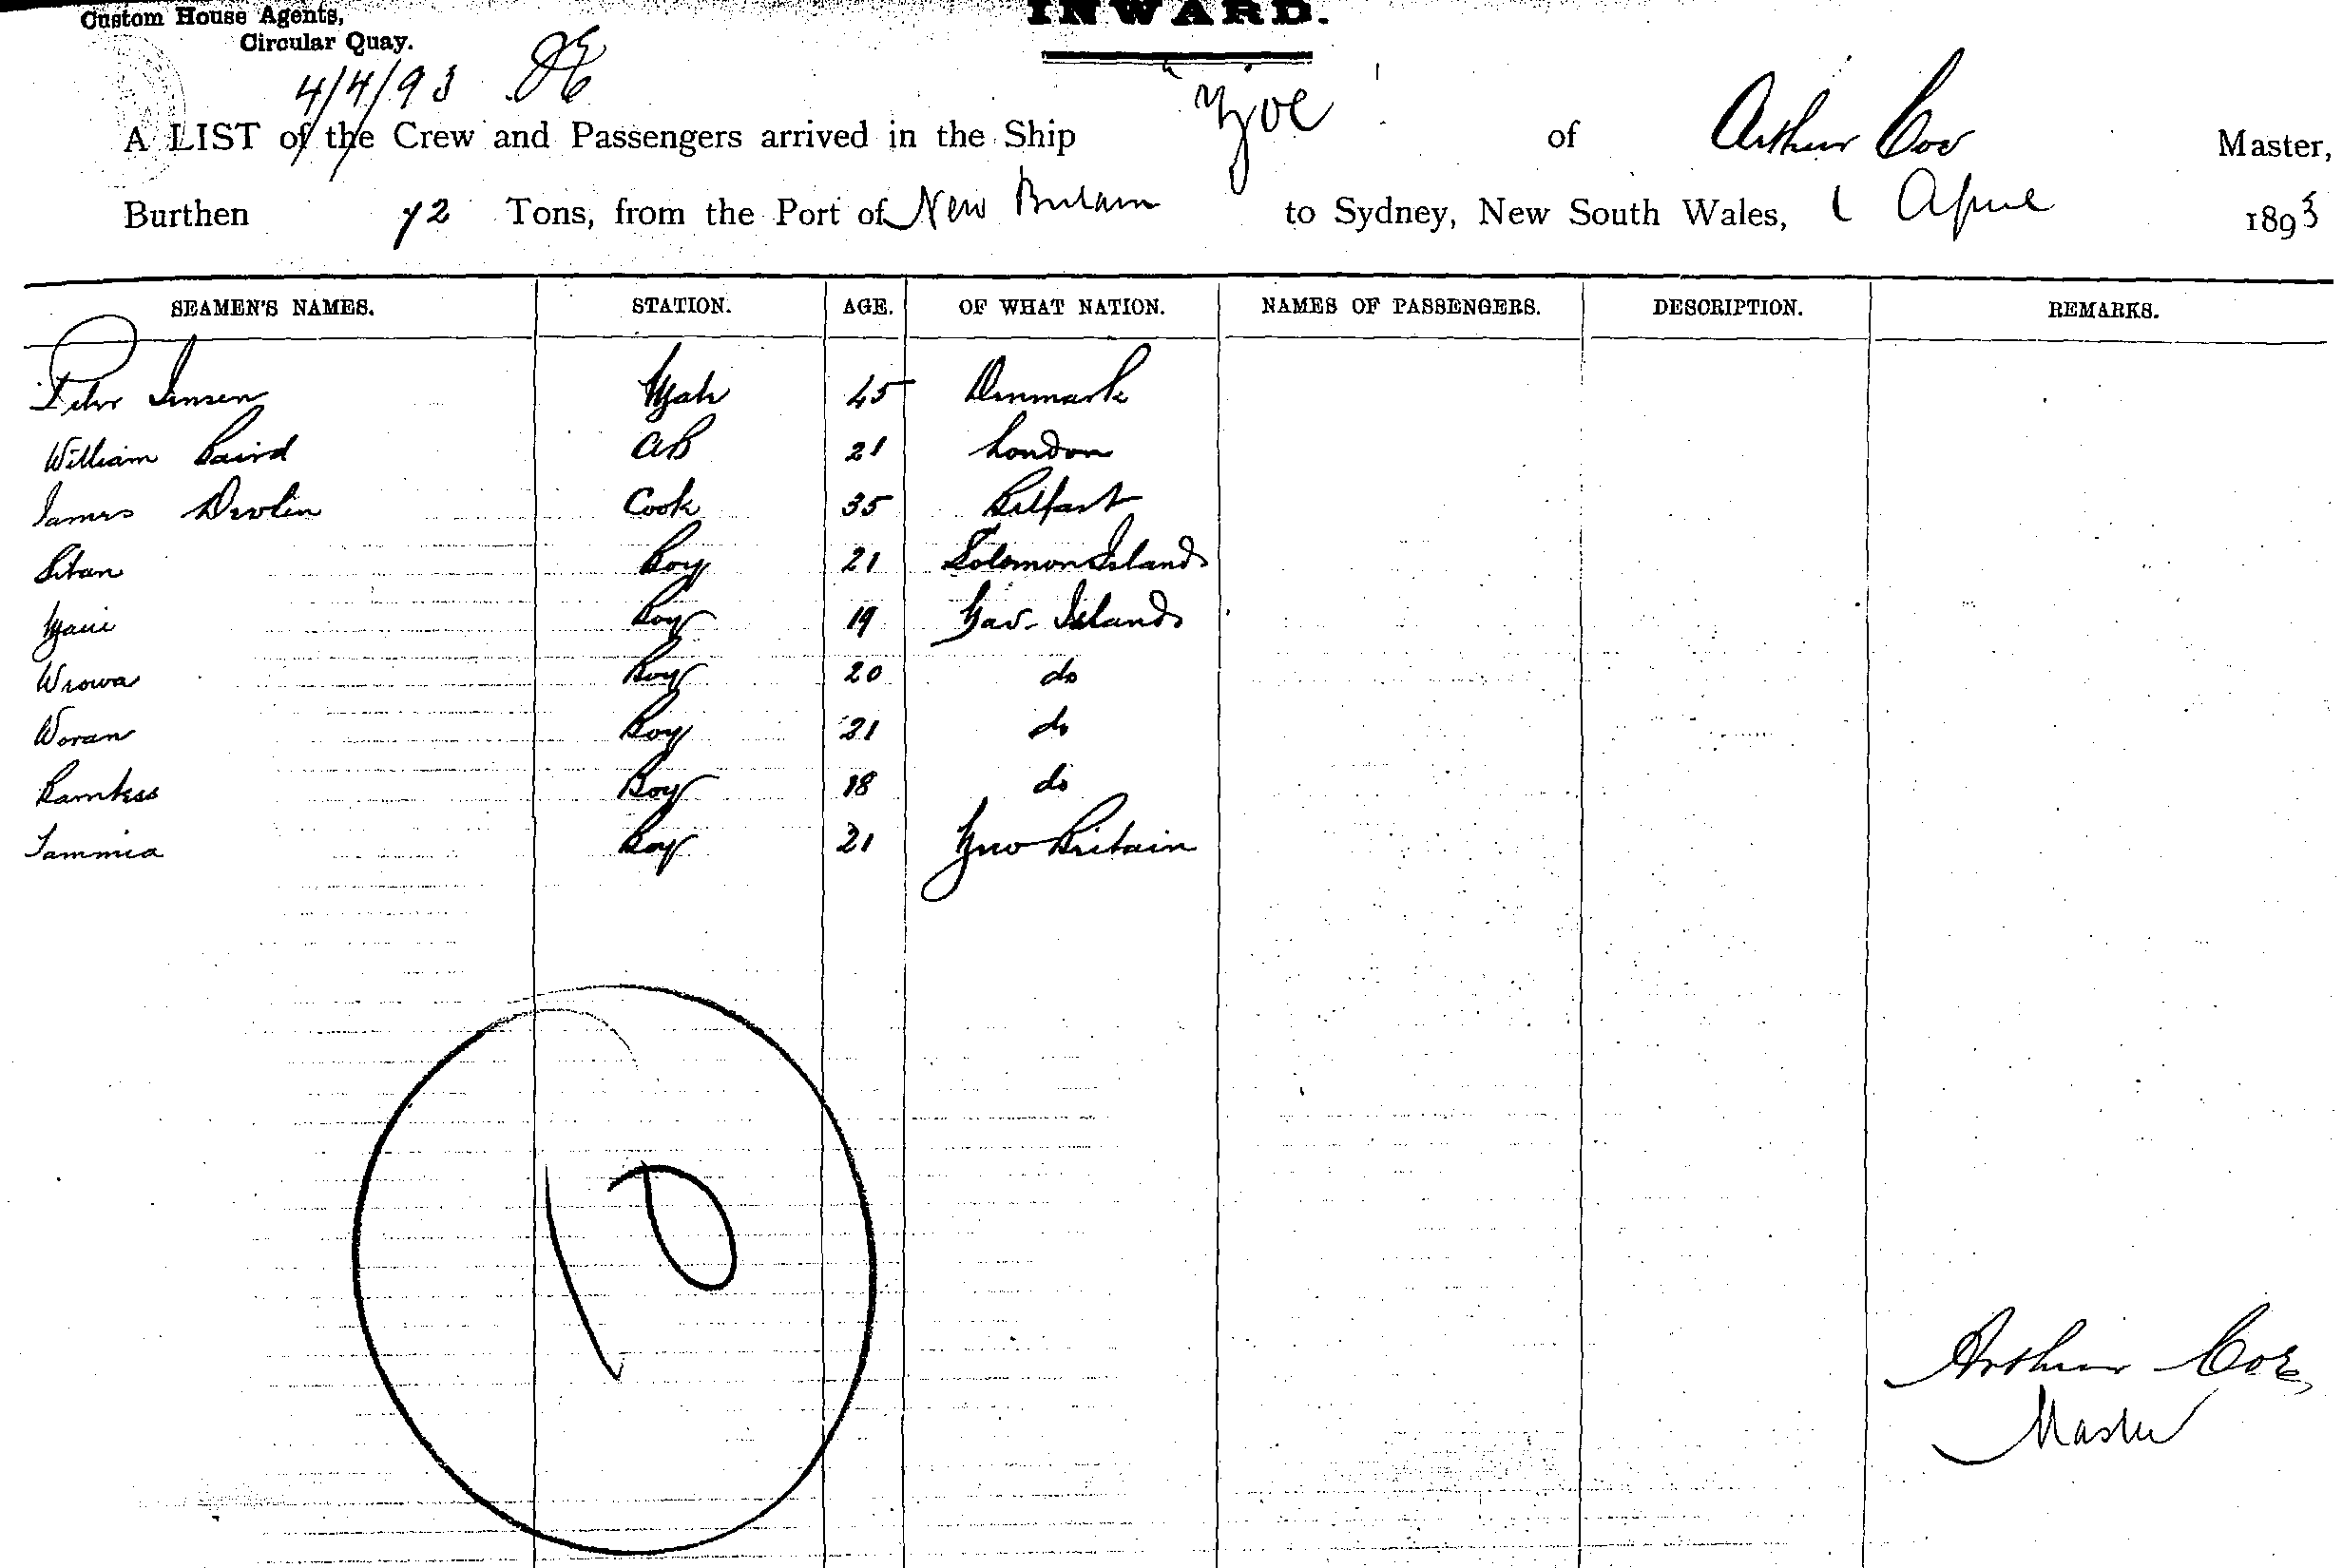 Custom House Agents,
Circular Quay.
INWARD.
4/4/93
A LIST of the Crew and Passengers arrived in the Ship Zoe of Arthur Coe Master,
Burthen 72 Tons, from the Port of New Britain to Sydney, New South Wales, 1 April 1893
SEAMEN'S NAMES. STATION. AGE. OF WHAT NATION. NAMES OF PASSENGERS. DESCRIPTION. REMARKS.
Peter Jensen Mate 45 Denmark
William Baird AB 21 London
James Devlin Cook 35 Belfast
Sitan Boy 21 Solomon Islands
Boy 19 Islands
Wrowa Boy 20 do
Woran Boy 21 do
Ramkess Boy 18 do
Tammia Boy 21 New Britain
10
Arthur Coe
Master